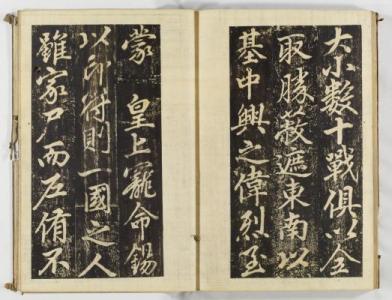 大小数十戰俱以全
取勝蔽遮東南以
基中興之偉烈至
蒙 皇上寵命錫
以印符則一國之人
雖家尸而户侑不